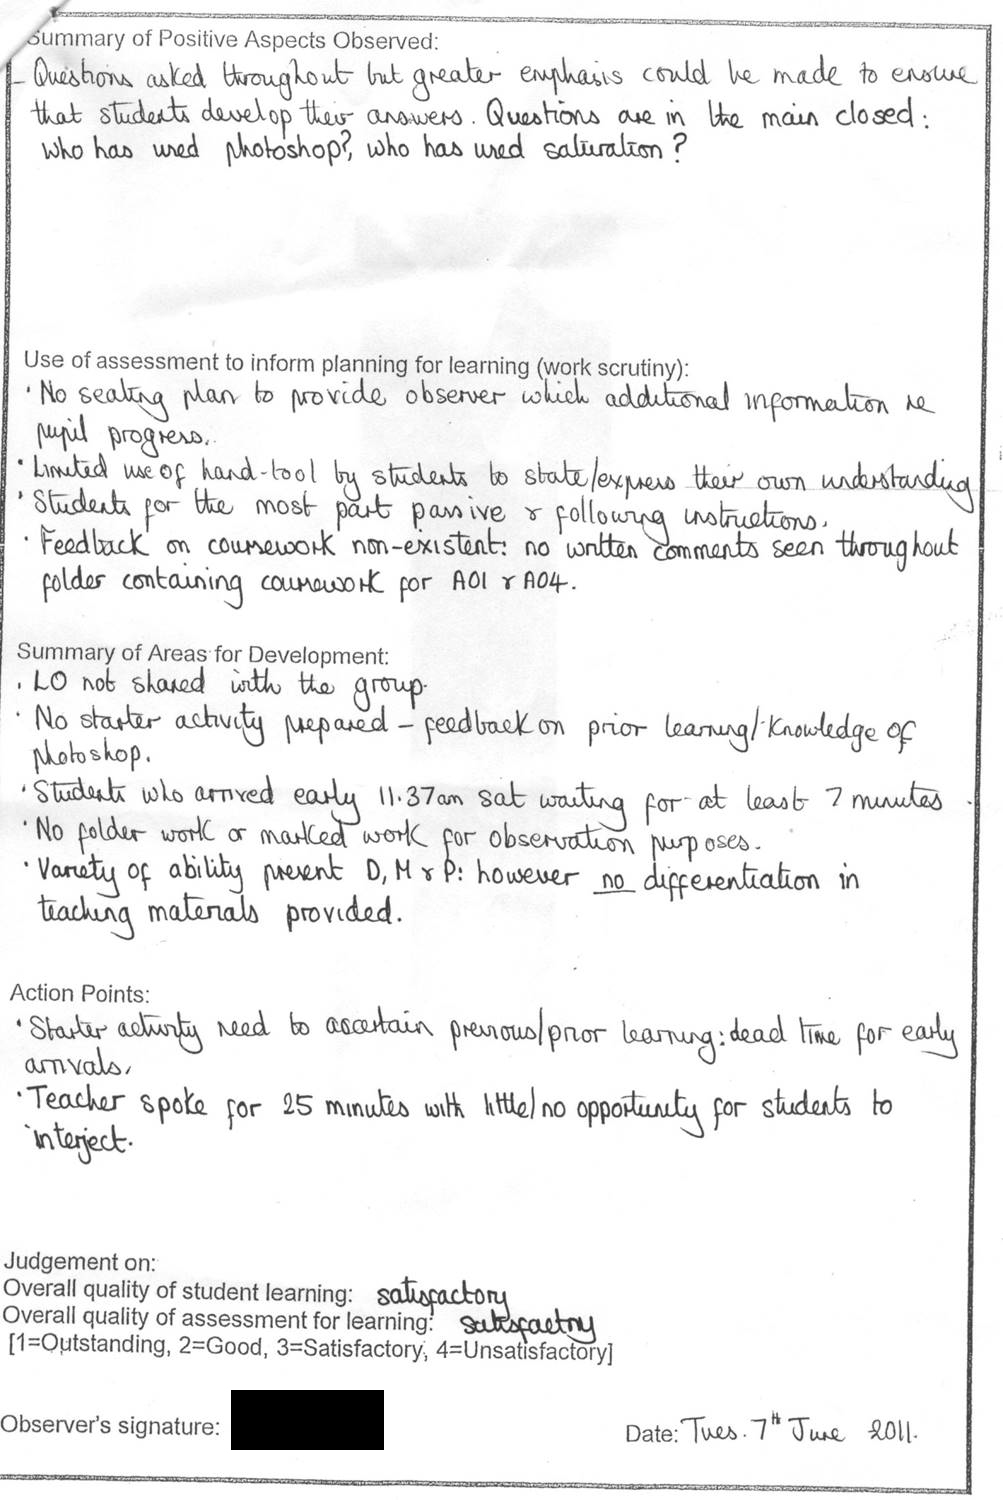 Summary of Positive Aspects Observed:
- Questions asked throughout but greater emphasis could be made to ensure
that students develop their answers. Questions are in the main closed:
who has used photoshop?, who has used saturation?
Use of assessment to inform planning for learning (work scrutiny):
· No seating plan to provide observer which additional information re
pupil progress.
· Limited use of hand-tool by students to state/express their own understanding
· Students for the most part passive & following instructions.
· Feedback on coursework non-existent: no written comments seen throughout
folder containing coursework for A01 & A04.
Summary of Areas for Development:
· LO not shared with the group.
· No starter activity prepared - feedback on prior learning/knowledge of
photoshop.
· Students who arrived early 11.37am sat waiting for at least 7 minutes
· No folder work or marked work for observation purposes.
· Variety of ability present D, M & P: however no differentiation in
teaching materials provided.
Action Points:
· Starter activity need to ascertain previous/prior learning: dead time for early
arrivals.
· Teacher spoke for 25 minutes with little/no opportunity for students to
interject.
Judgement on:
Overall quality of student learning: satisfactory
Overall quality of assessment for learning: satisfactory
[1=Outstanding, 2=Good, 3=Satisfactory, 4=Unsatisfactory]
Observer's signature:
Date: Tues. 7th June 2011.